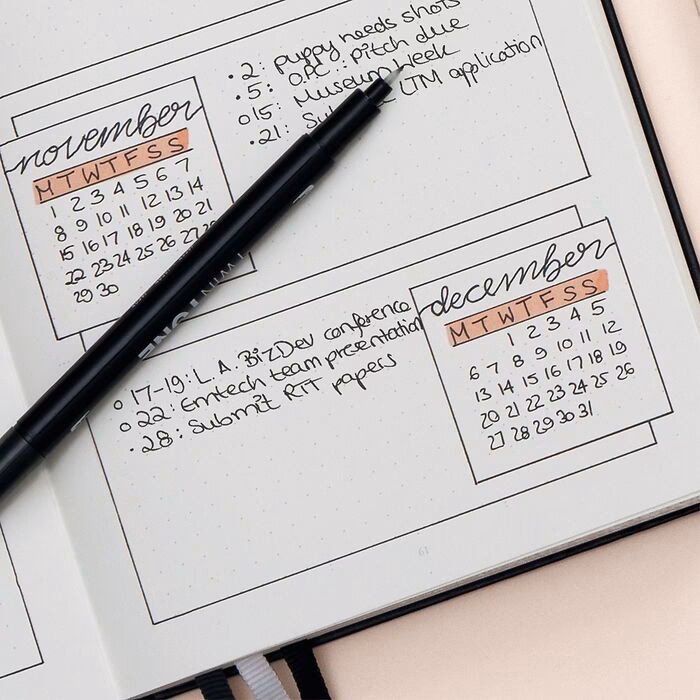 • 2: puppy needs shots
• 5: OPC: pitch due
o 15: Museum Week
• 21: LTM application
november
M T W T F S S
1 2 3 4 5 6 7
8 9 10 11 12 13 14
15 16 17 18 19 20 21
22 23 24 25 26 27
29 30
TWINTONE
december
M T W T F S S
1 2 3 4 5
6 7 8 9 10 11 12
13 14 15 16 17 18 19
20 21 22 23 24 25 26
27 28 29 30 31
o 17-19: L.A. BizDev conference
o 22: Emtech team presentation
• 28: Submit RIT papers
61